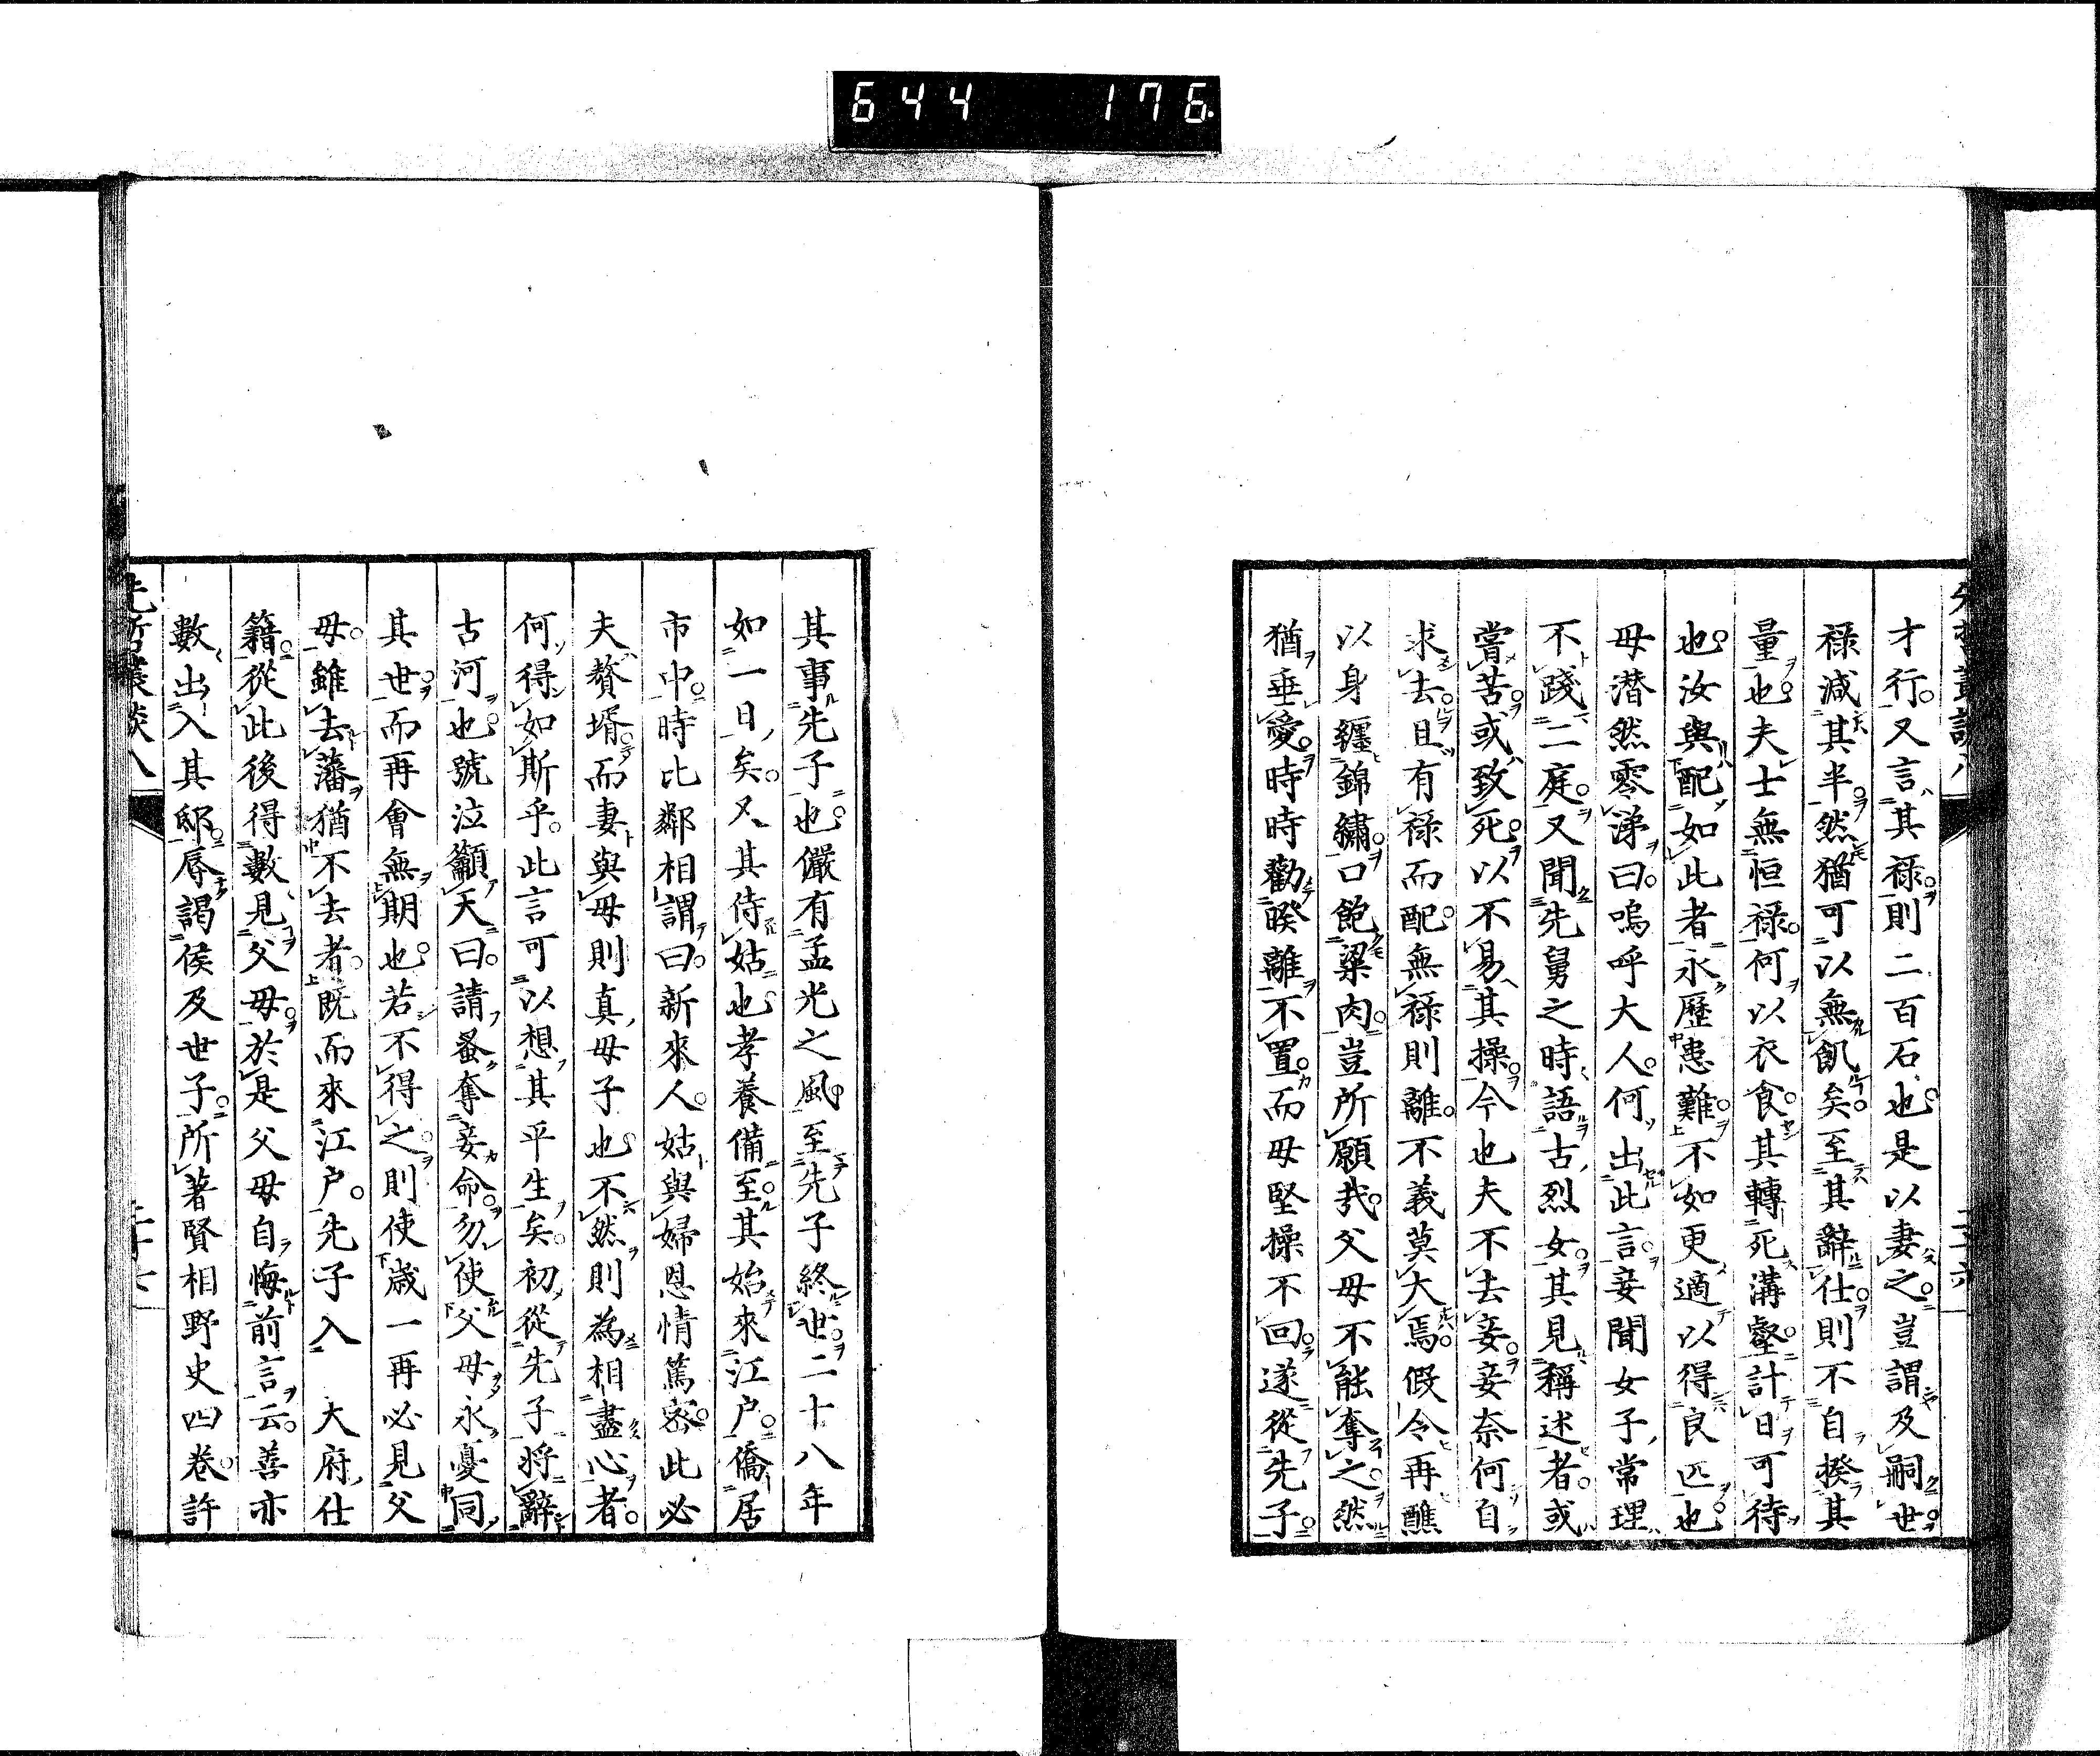 644 176
才行又言其祿則二百石也是以妻之豈謂及嗣世
祿減其半然猶可以無飢矣至其辭仕則不自揆其
量也夫士無恒祿何以衣食其轉死溝壑計日可待
也汝與配如此者永歷患難不如更適以得良匹也
母潜然零涕曰嗚呼大人何出此言妾聞女子常理
不踐二庭又聞先舅之時語古烈女其見稱述者或
嘗苦或致死以不易其操今也夫不去妾妾奈何自
求去且有祿而配無祿則離不義莫大焉假令再醮
以身纏錦繡口飽粱肉豈所願哉父母不能奪之然
猶垂愛時時勸睽離不置而母堅操不回遂從先子
其事先子也儼有孟光之風至先子終世二十八年
如一日矣又其侍姑也孝養備至其始來江戶僑居
市中時比鄰相謂曰新來人姑與婦恩情篤密此必
夫贅壻而妻與母則真母子也不然則為相盡心者
何得如斯乎此言可以想其平生矣初從先子將辭
古河也號泣籲天曰請蚤奪妾命勿使父母永憂同
其世而再會無期也若不得之則使歲一再必見父
母雖去藩猶不去者既而來江戶先子入 大府仕
籍從此後得數見父母於是父母自悔前言云善亦
數出入其邸辱謁侯及世子所著賢相野史四卷許
先哲叢談八